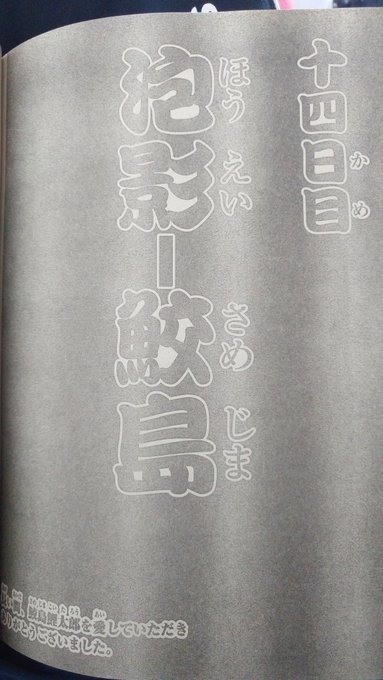 十四日目
かめ
泡影ー鮫島
ほうえい さめじま
長い間、鮫島鯉太郎を愛していただき
ありがとうございました。